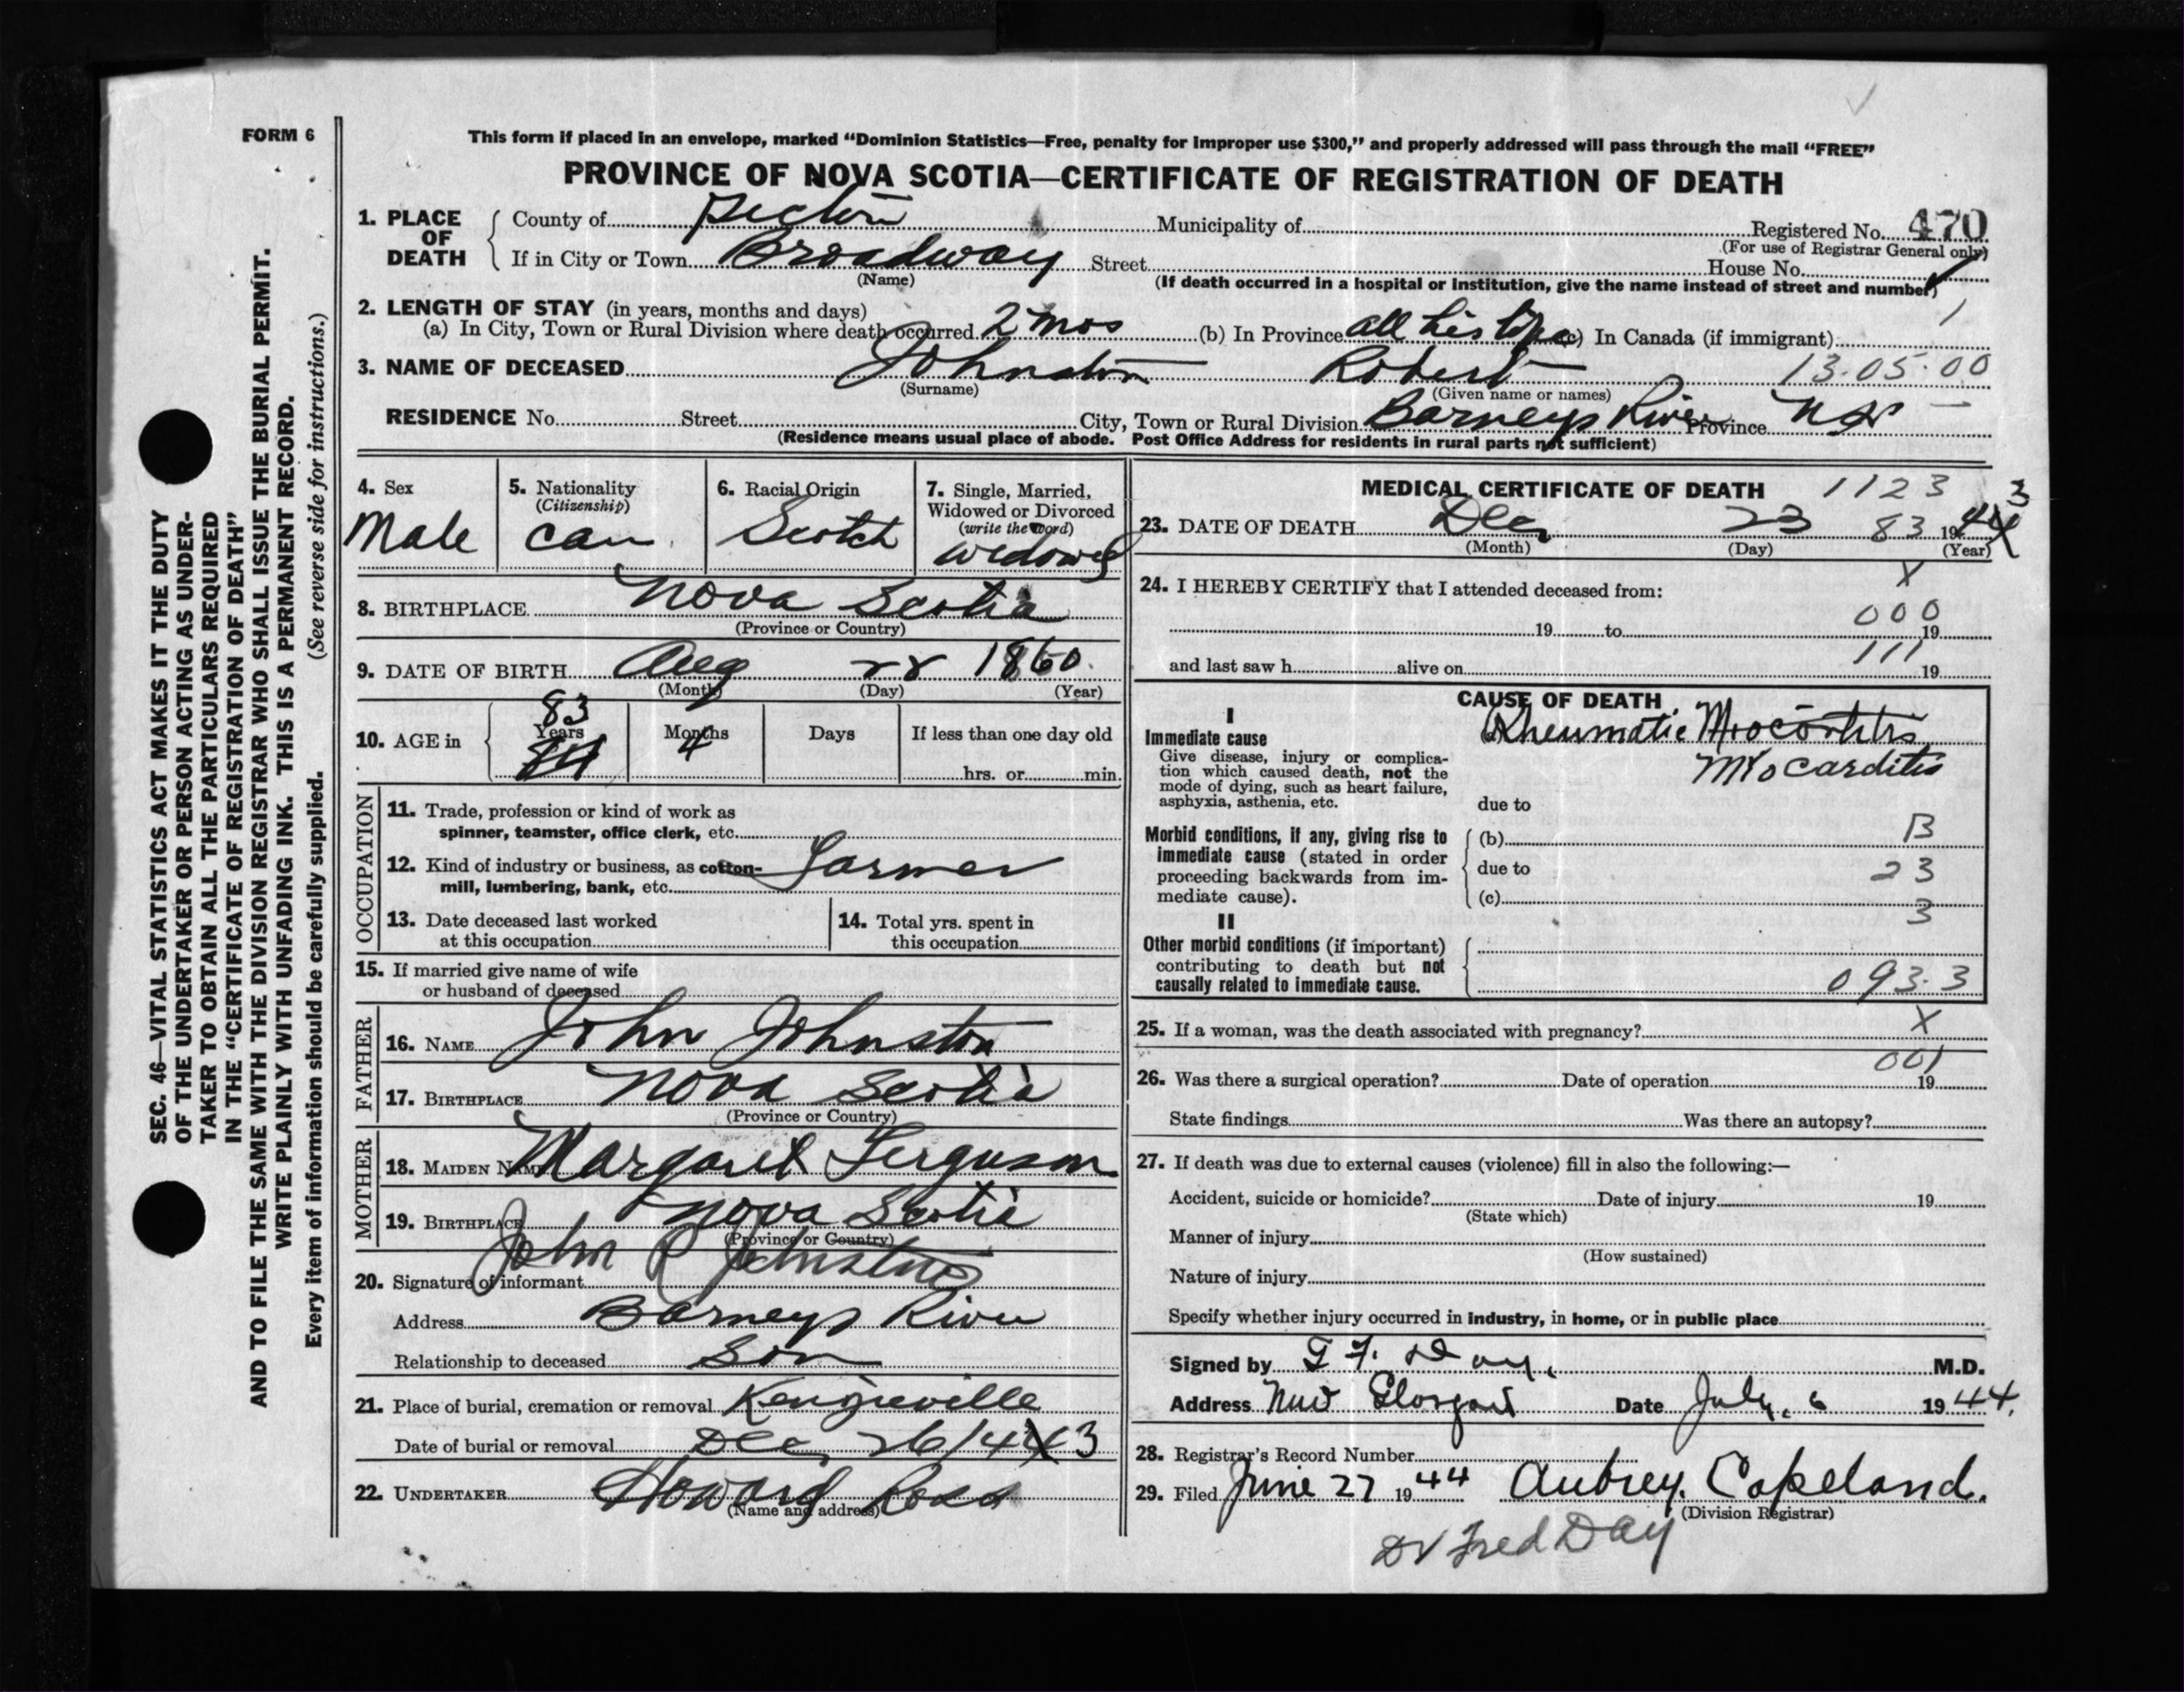 FORM 6
This form if placed in an envelope, marked “Dominion Statistics—Free, penalty for improper use $300,” and properly addressed will pass through the mail “FREE”
PROVINCE OF NOVA SCOTIA—CERTIFICATE OF REGISTRATION OF DEATH
1. PLACE OF DEATH { County of Pictou Municipality of Registered No. 470
(For use of Registrar General only)
If in City or Town Broadway Street House No.
(Name) (If death occurred in a hospital or institution, give the name instead of street and number)
2. LENGTH OF STAY (in years, months and days)
(a) In City, Town or Rural Division where death occurred 2 mos (b) In Province all his life (c) In Canada (if immigrant) 1
3. NAME OF DECEASED Johnston Robert 13·05·00
(Surname) (Given name or names)
RESIDENCE No. Street City, Town or Rural Division Barneys River Province N S
(Residence means usual place of abode. Post Office Address for residents in rural parts not sufficient)
4. Sex Male
5. Nationality
(Citizenship)
Can.
6. Racial Origin
Scotch
7. Single, Married,
Widowed or Divorced
(write the word)
widowed
8. BIRTHPLACE Nova Scotia
(Province or Country)
9. DATE OF BIRTH Aug 22 1860.
(Month) (Day) (Year)
10. AGE in { 83 Years 84 Months 4 Days If less than one day old
hrs. or min.
OCCUPATION
11. Trade, profession or kind of work as
spinner, teamster, office clerk, etc.
12. Kind of industry or business, as cotton-
mill, lumbering, bank, etc. Farmer
13. Date deceased last worked
at this occupation
14. Total yrs. spent in
this occupation
15. If married give name of wife
or husband of deceased
FATHER
16. NAME John Johnston
17. BIRTHPLACE Nova Scotia
(Province or Country)
MOTHER
18. MAIDEN NAME Margaret Ferguson
19. BIRTHPLACE Nova Scotia
(Province or Country)
20. Signature of informant John R Johnston
Address Barneys River
Relationship to deceased Son
21. Place of burial, cremation or removal Kenzieville
Date of burial or removal Dec, 26/44 3
22. UNDERTAKER Howard Ross
(Name and address)
MEDICAL CERTIFICATE OF DEATH 1123
23. DATE OF DEATH Dec, 23 83 1944 3
(Month) (Day) (Year)
24. I HEREBY CERTIFY that I attended deceased from: X
000
19 to 19
111
and last saw h alive on 19
CAUSE OF DEATH
I
Immediate cause
Give disease, injury or complica-
tion which caused death, not the
mode of dying, such as heart failure,
asphyxia, asthenia, etc.
Rheumatic
Miocarditis
due to
Morbid conditions, if any, giving rise to
immediate cause (stated in order
proceeding backwards from im-
mediate cause).
(b) B
due to 23
(c) 3
II
Other morbid conditions (if important)
contributing to death but not
causally related to immediate cause.
093·3
25. If a woman, was the death associated with pregnancy? X
001
26. Was there a surgical operation? Date of operation 19
State findings Was there an autopsy?
27. If death was due to external causes (violence) fill in also the following:—
Accident, suicide or homicide? Date of injury 19
(State which)
Manner of injury
(How sustained)
Nature of injury
Specify whether injury occurred in industry, in home, or in public place
Signed by F. Day. M.D.
Address New Glasgow Date July. 6 1944.
28. Registrar's Record Number
29. Filed June 27 1944 Aubrey. Copeland.
(Division Registrar)
Dr Fred Day
SEC. 46—VITAL STATISTICS ACT MAKES IT THE DUTY
OF THE UNDERTAKER OR PERSON ACTING AS UNDER-
TAKER TO OBTAIN ALL THE PARTICULARS REQUIRED
IN THE “CERTIFICATE OF REGISTRATION OF DEATH”
AND TO FILE THE SAME WITH THE DIVISION REGISTRAR WHO SHALL ISSUE THE BURIAL PERMIT.
WRITE PLAINLY WITH UNFADING INK. THIS IS A PERMANENT RECORD.
Every item of information should be carefully supplied. (See reverse side for instructions.)